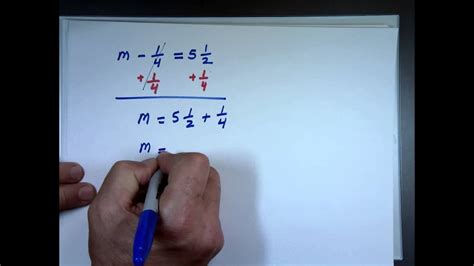 m - 1/4 = 5 1/2
+ 1/4 + 1/4
m = 5 1/2 + 1/4
m =